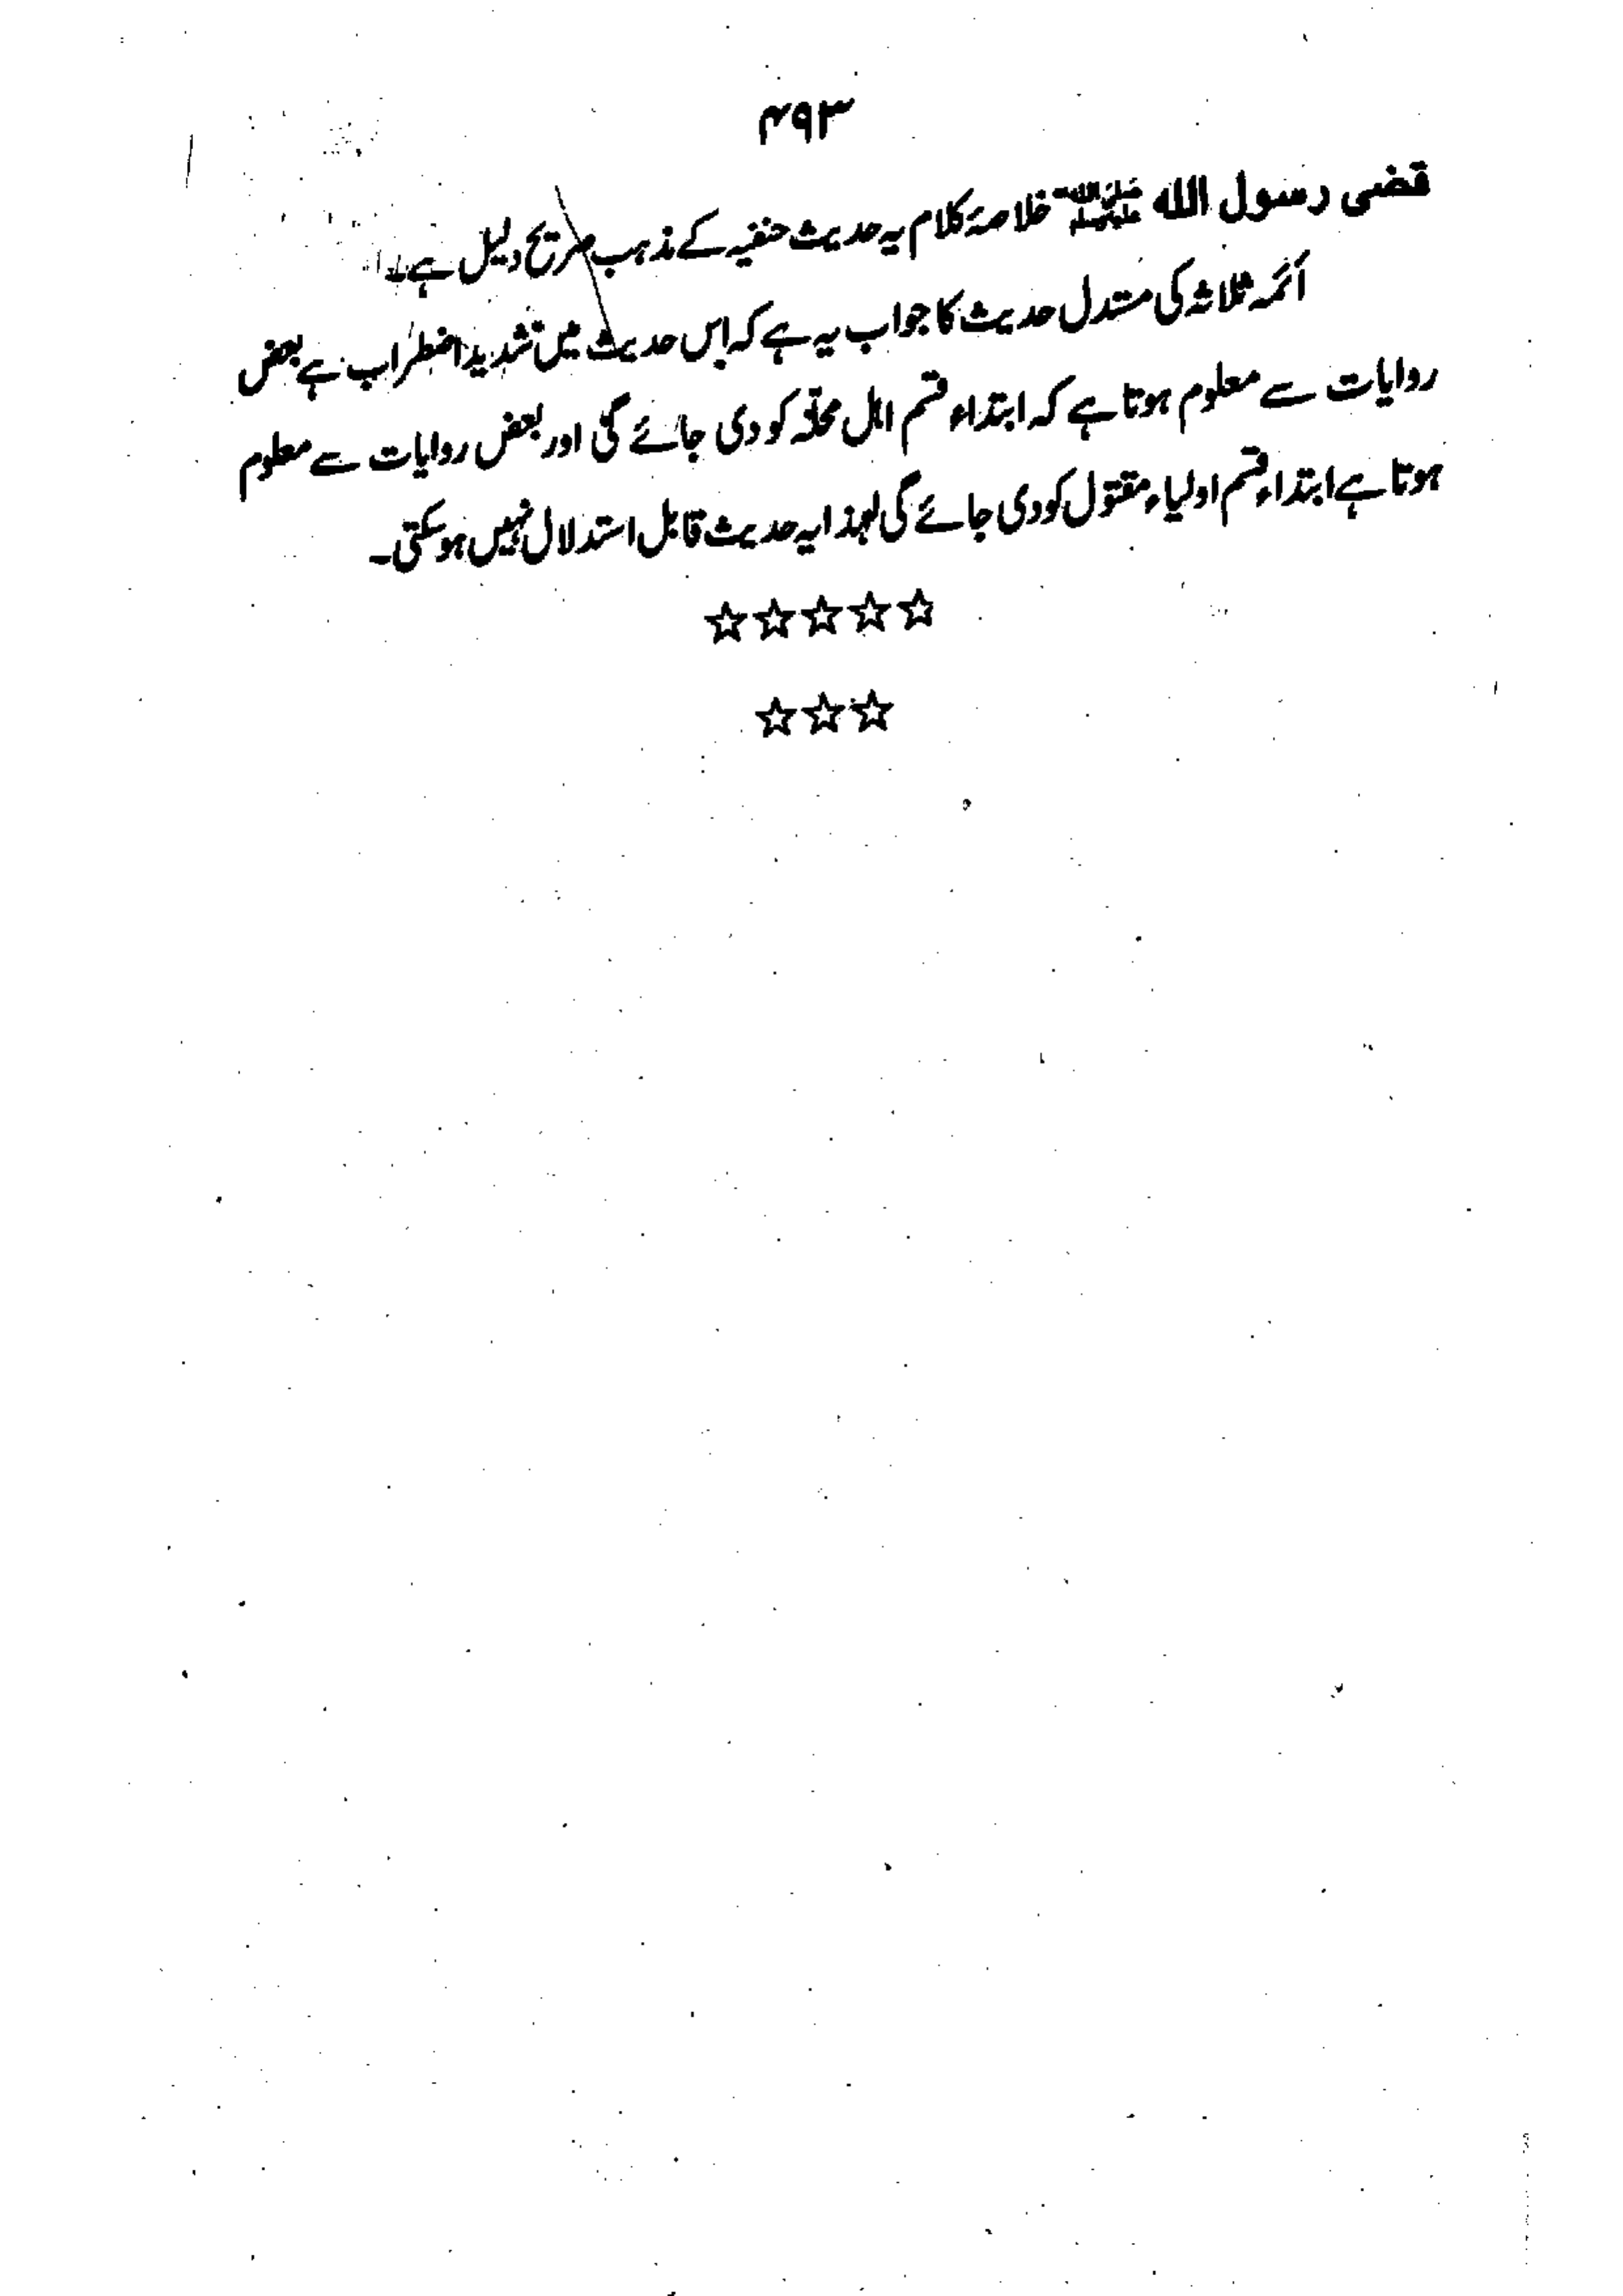 ۴۹۳
قضی رسول اللہ ﷺ خلاصۂ کلام یہ حدیث حنفیہ کے مذہب صریح دلیل ہے۔
ائمہ ثلاثہ کی مستدل حدیث کا جواب یہ ہے کہ اس حدیث میں شدید اضطراب ہے بعض
روایات سے معلوم ہوتا ہے کہ ابتداء قسم اہل محلّہ کو دی جائے گی اور بعض روایات سے معلوم
ہوتا ہے ابتداء قسم اولیاء مقتول کو دی جائے گی لہٰذا یہ حدیث قابل استدلال نہیں ہو سکتی۔
☆☆☆☆☆
☆☆☆